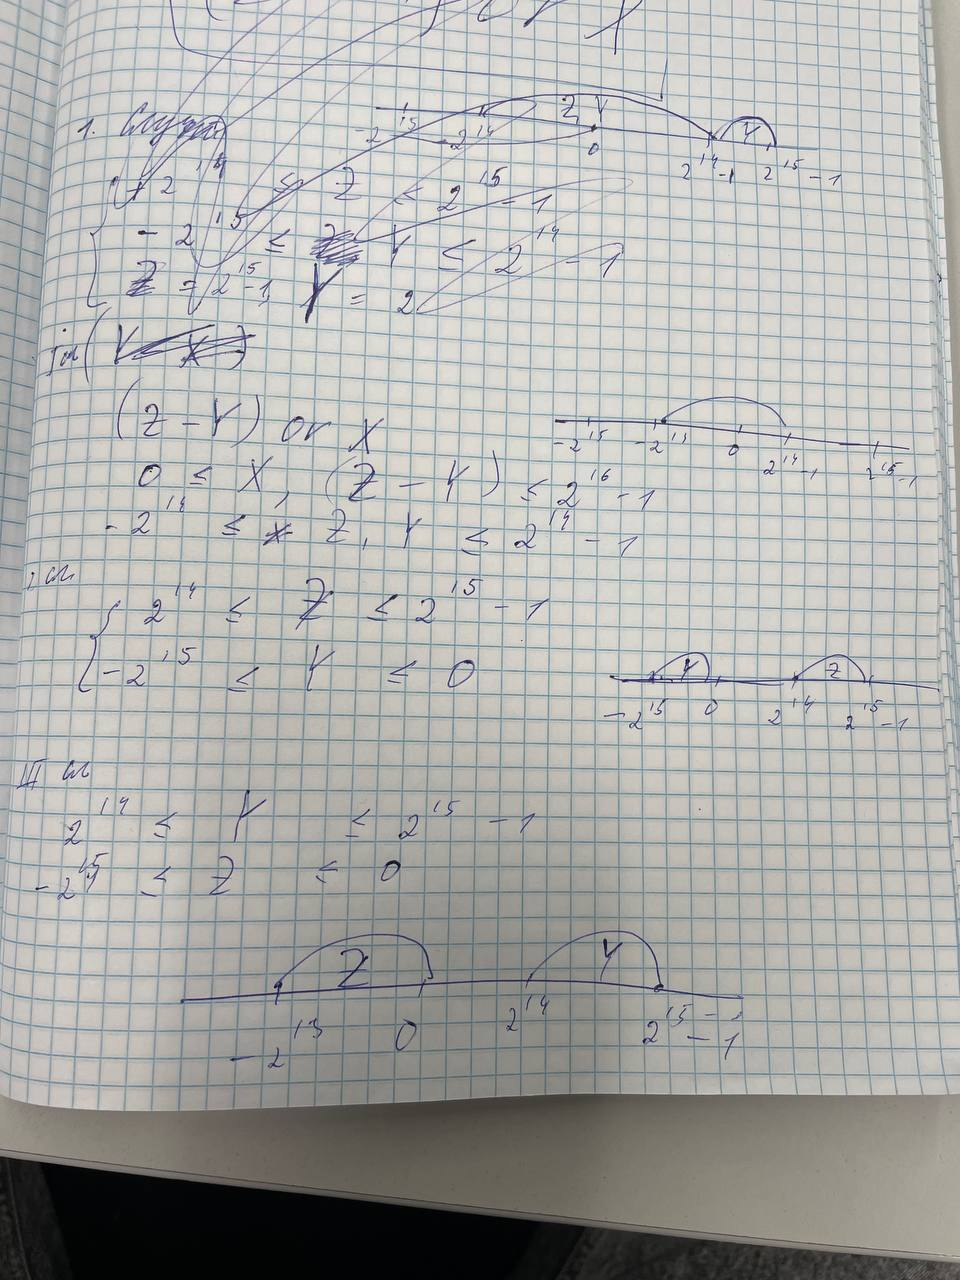 1. Случай
-2¹⁵ -2¹⁴ Z, Y 0 2¹⁴-1 Y 2¹⁵-1
+2¹⁴ ≤ Z ≤ 2¹⁵ - 1
-2¹⁵ ≤ Y ≤ 2¹⁴ - 1
Z = 2¹⁵-1, Y = 2
(Z - Y) or X
-2¹⁵ 0 2¹⁴-1 2¹⁵-1
0 ≤ X, (Z - Y) ≤ 2¹⁶ - 1
-2¹⁴ ≤ Z, Y ≤ 2¹⁴ - 1
сл
2¹⁴ ≤ Z ≤ 2¹⁵ - 1
-2¹⁵ ≤ Y ≤ 0
Y Z
-2¹⁵ 0 2¹⁴ 2¹⁵-1
III сл
2¹⁴ ≤ Y ≤ 2¹⁵ - 1
-2¹⁵ ≤ Z ≤ 0
Z Y
0 2¹⁴ 2¹⁵-1